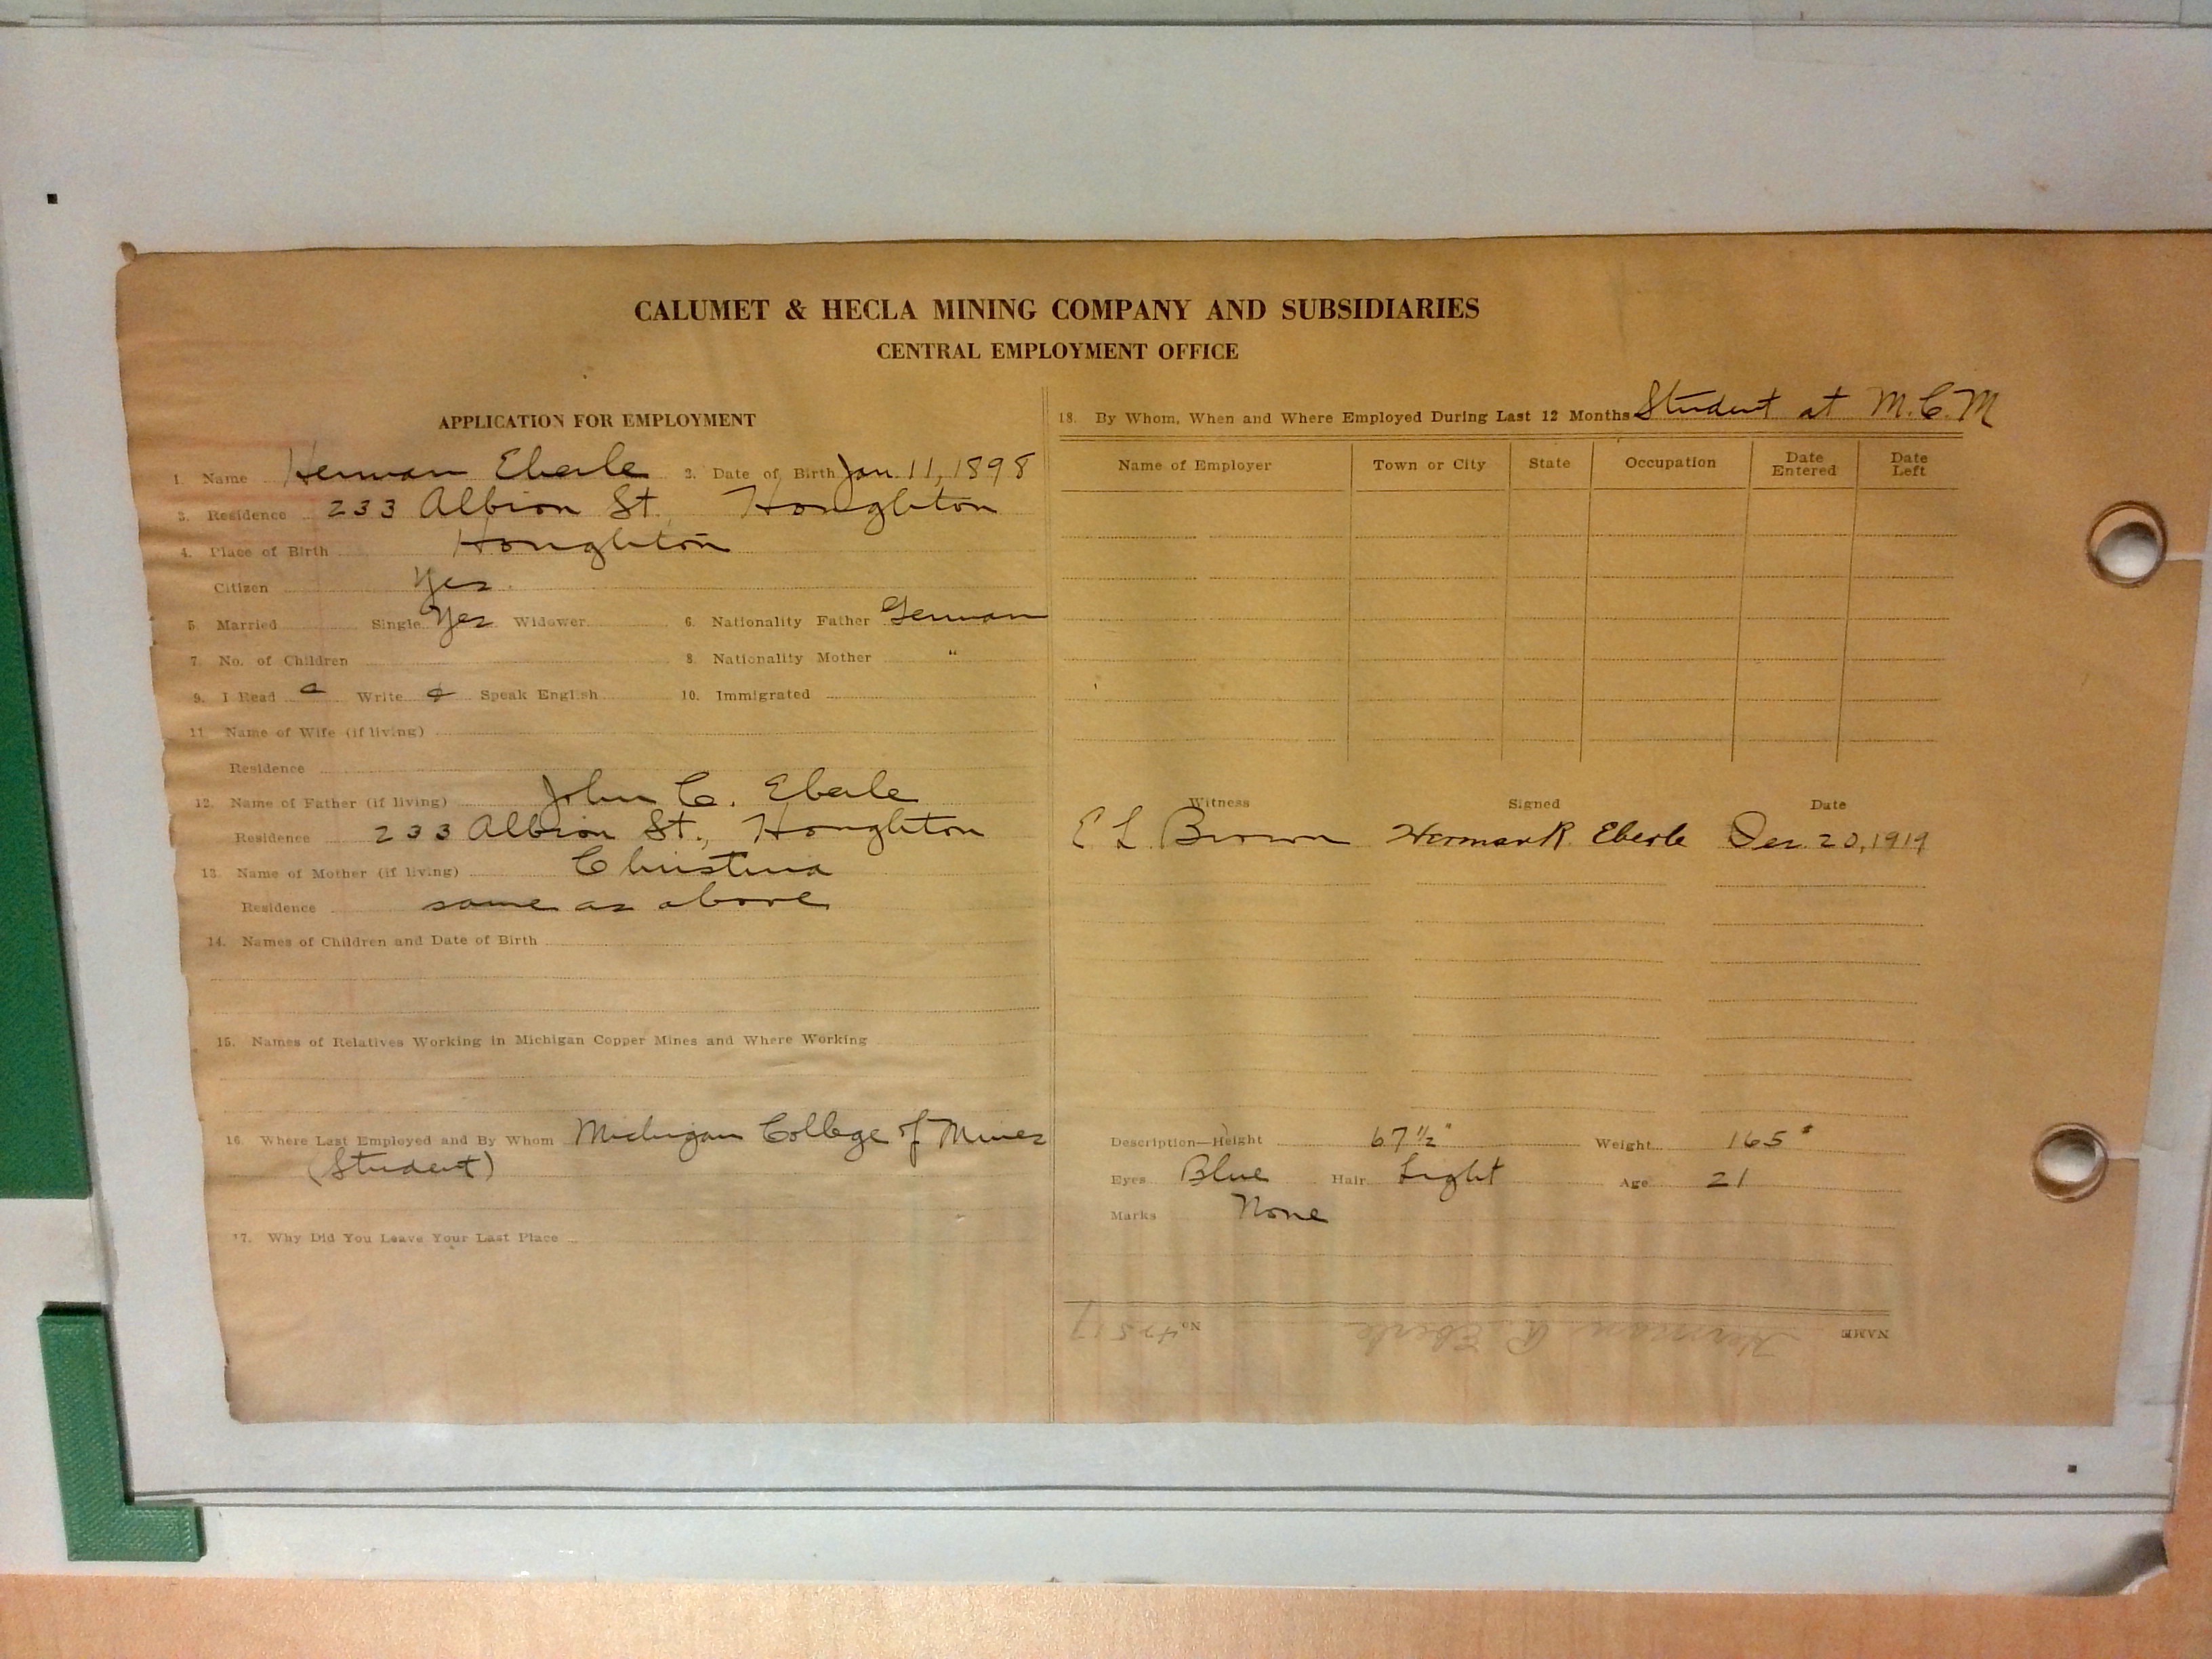 CALUMET & HECLA MINING COMPANY AND SUBSIDIARIES
CENTRAL EMPLOYMENT OFFICE
APPLICATION FOR EMPLOYMENT
1. Name Herman Eberle 2. Date of Birth Jan. 11, 1898
3. Residence 233 Albion St. Houghton
4. Place of Birth Houghton
Citizen Yes
5. Married Single Yes Widower 6. Nationality Father German
7. No. of Children 8. Nationality Mother "
9. I Read Write Speak English 10. Immigrated
11. Name of Wife (if living)
Residence
12. Name of Father (if living) John C. Eberle
Residence 233 Albion St., Houghton
13. Name of Mother (if living) Christina
Residence same as above
14. Names of Children and Date of Birth
15. Names of Relatives Working in Michigan Copper Mines and Where Working
16. Where Last Employed and By Whom Michigan College of Mines
(Student)
17. Why Did You Leave Your Last Place
18. By Whom, When and Where Employed During Last 12 Months Student at M.C.M
Name of Employer Town or City State Occupation Date Entered Date Left
Witness Signed Date
E L. Brown Herman R. Eberle Dec. 20, 1919
Description—Height 67 1/2" Weight 165 #
Eyes Blue Hair Light Age 21
Marks None
NAME Herman R. Eberle No. 42517